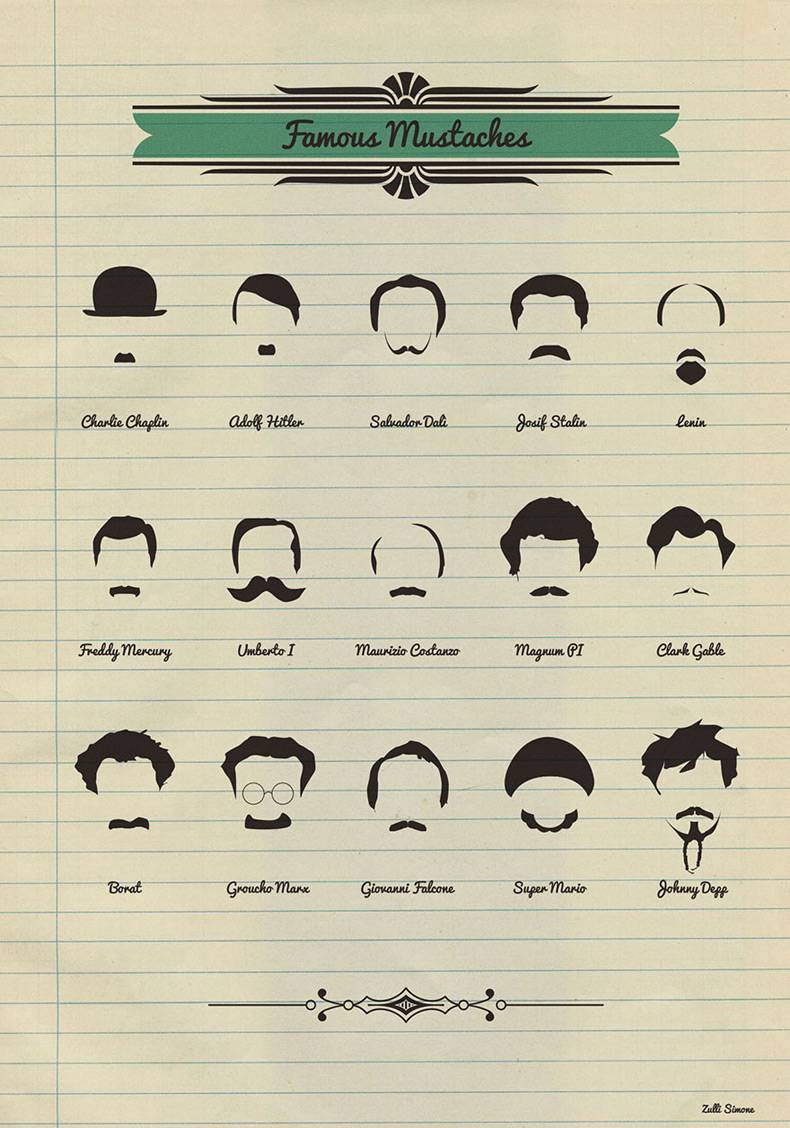 Famous Mustaches
Charlie Chaplin
Adolf Hitler
Salvador Dalì
Josif Stalin
Lenin
Freddy Mercury
Umberto I
Maurizio Costanzo
Magnum PI
Clark Gable
Borat
Groucho Marx
Giovanni Falcone
Super Mario
Johnny Depp
Zulli Simone